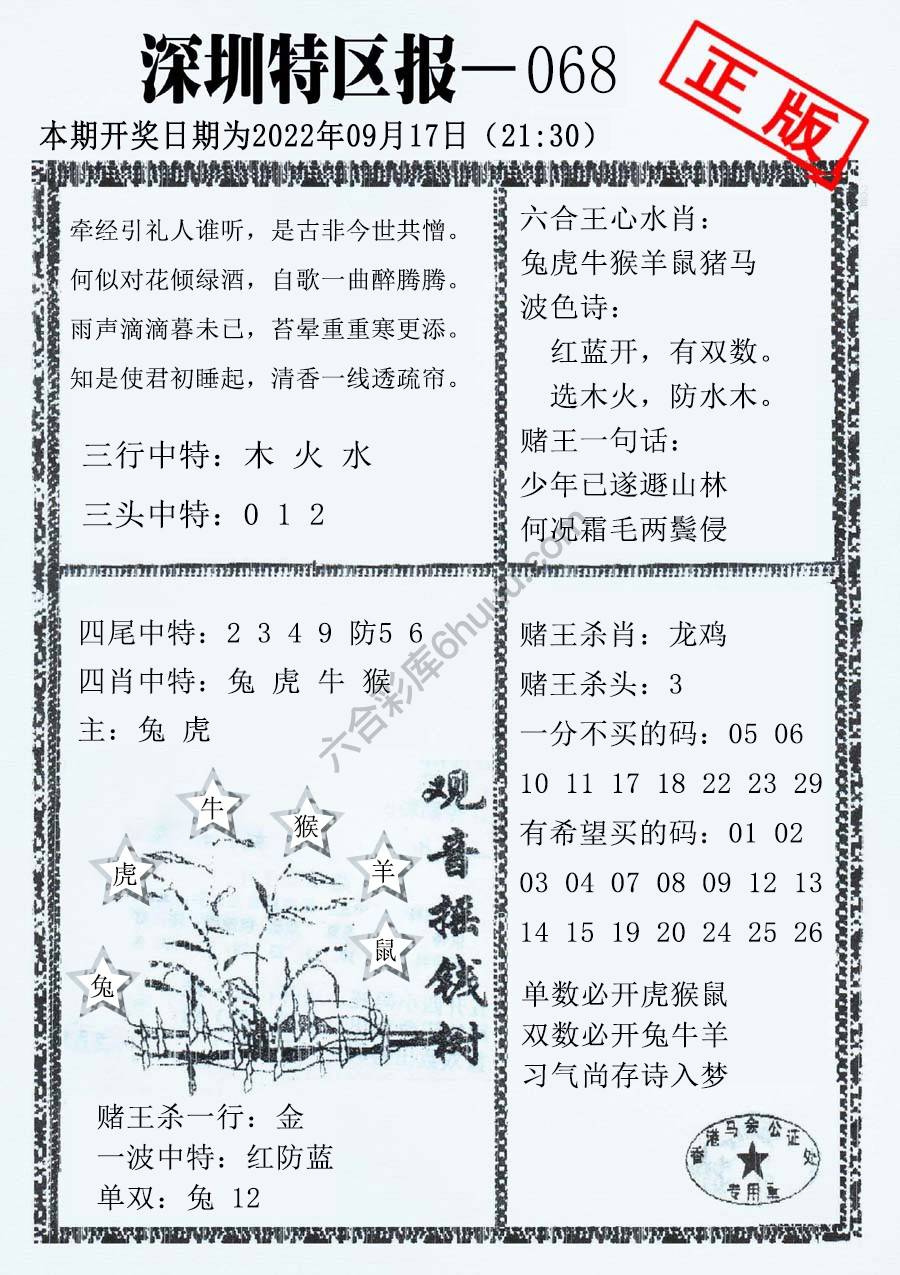 深圳特区报—068
正版
本期开奖日期为2022年09月17日（21:30）
牵经引礼人谁听，是古非今世共憎。
何似对花倾绿酒，自歌一曲醉腾腾。
雨声滴滴暮未已，苔晕重重寒更添。
知是使君初睡起，清香一线透疏帘。
三行中特：木 火 水
三头中特：0 1 2
六合王心水肖：
兔虎牛猴羊鼠猪马
波色诗：
红蓝开，有双数。
选木火，防水木。
赌王一句话：
少年已遂遯山林
何况霜毛两鬓侵
四尾中特：2 3 4 9 防5 6
四肖中特：兔 虎 牛 猴
主：兔 虎
牛
猴
虎
羊
鼠
兔
观音摇钱树
赌王杀一行：金
一波中特：红防蓝
单双：兔 12
赌王杀肖：龙鸡
赌王杀头：3
一分不买的码：05 06
10 11 17 18 22 23 29
有希望买的码：01 02
03 04 07 08 09 12 13
14 15 19 20 24 25 26
单数必开虎猴鼠
双数必开兔牛羊
习气尚存诗入梦
香港马会公证处
专用章
六合彩库6huuu.com